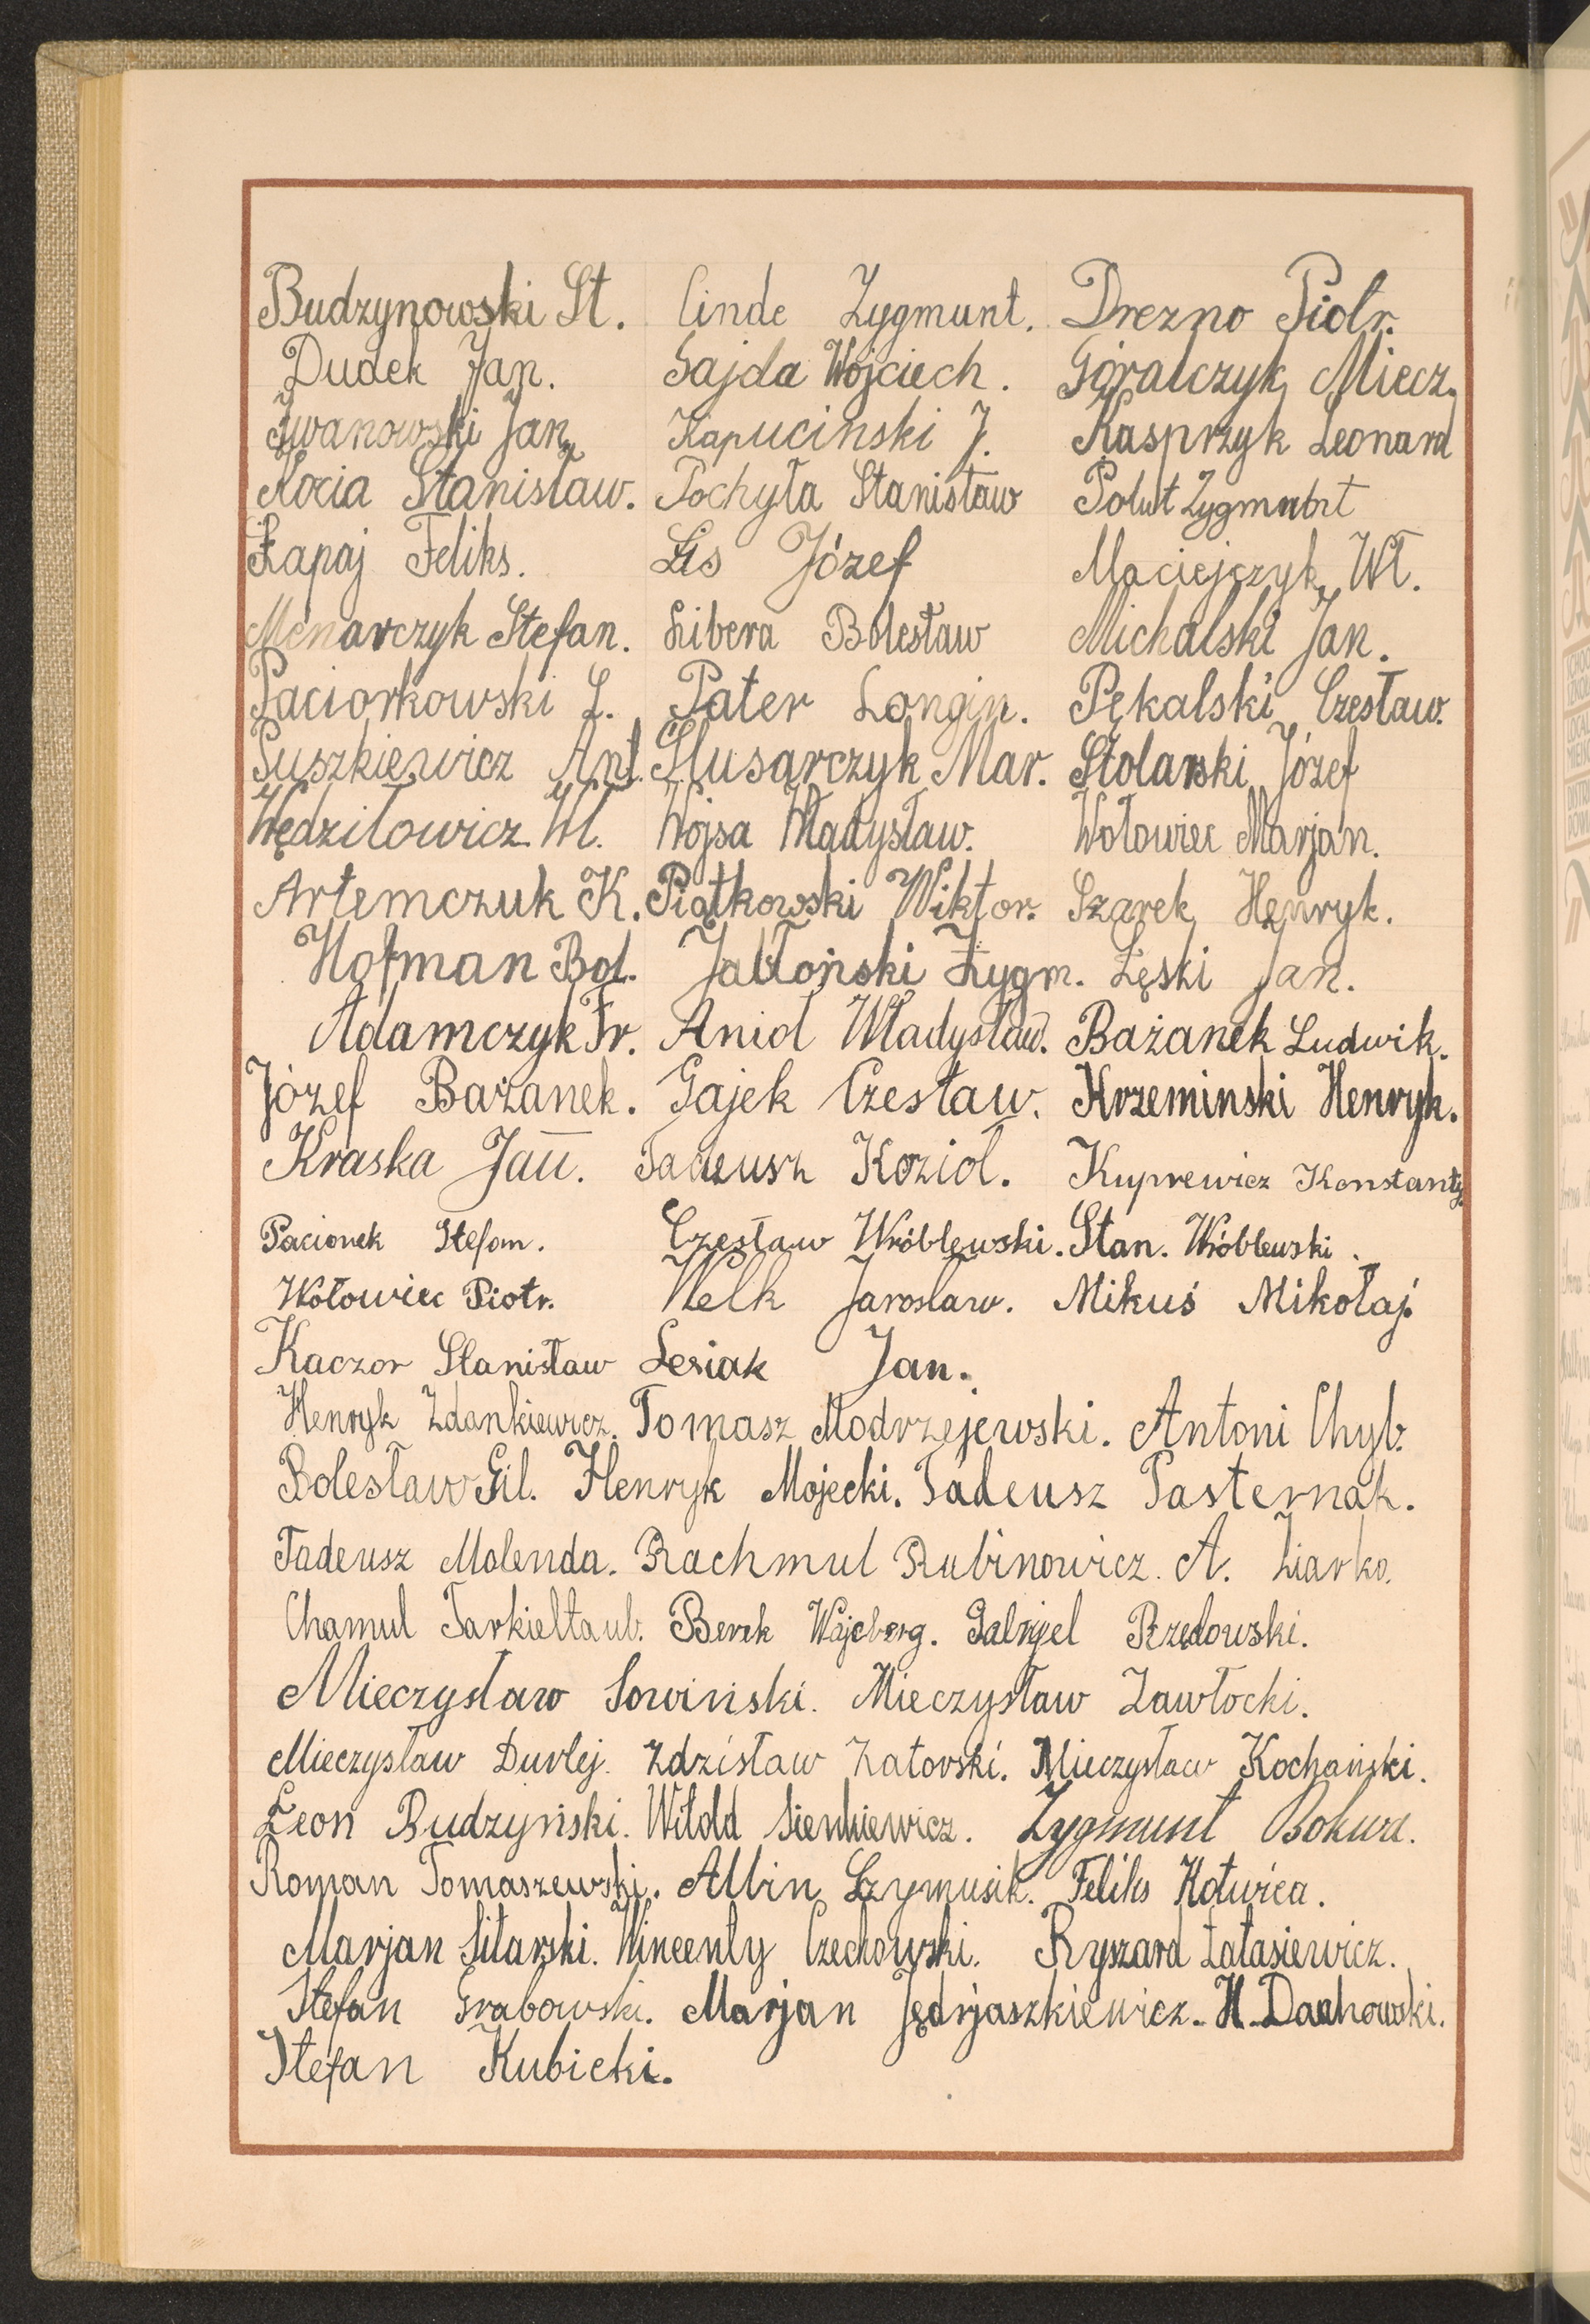 Budzynowski St. Cinde Zygmunt. Drezno Piotr.
Dudek Jan. Gajda Wojciech. Góralczyk Miecz.
Iwanowski Jan Kapucinski J. Kasprzyk Leonard
Kocia Stanisław. Pochyła Stanisław Polut Zygmunt
Łapaj Feliks. Lis Józef Maciejczyk Wł.
Menarczyk Stefan. Libera Bolesław Michalski Jan.
Paciorkowski L. Pater Longin. Pękalski Czesław.
Puszkiewicz Ant. Ślusarczyk Mar. Stolarski Józef
Wędziłowicz Wł. Wojsa Władysław. Wołowiec Marjan.
Artemczuk K. Piątkowski Wiktor. Szarek Henryk.
Hofman Bol. Jabłoński Zygm. Łęski Jan.
Adamczyk Fr. Anioł Władysław. Bażanek Ludwik.
Józef Bażanek. Gajek Czesław. Krzeminski Henryk.
Kraska Jan. Tadeusz Kozioł. Kuprewicz Konstanty.
Pacionek Stefan. Czesław Wróblewski. Stan. Wróblewski.
Wołowiec Piotr. Welk Jarosław. Mikuś Mikołaj.
Kaczor Stanisław Lesiak Jan.
Henryk Zdankiewicz. Tomasz Modrzejewski. Antoni Chyb.
Bolesław Gil. Henryk Mojecki. Tadeusz Pasternak.
Tadeusz Molenda. Rachmul Rubinowicz. A. Ziarko.
Chamul Tarkieltaub. Berek Wajcberg. Gabrjel Rzedowski.
Mieczysław Sowiński. Mieczysław Zawłocki.
Mieczysław Durlej. Zdzisław Zatorski. Mieczysław Kochański.
Leon Budzyński. Witold Sienkiewicz. Zygmunt Bokwa.
Roman Tomaszewski. Albin Szymusik. Feliks Kotwica.
Marjan Sitarski. Wincenty Czechowski. Ryszard Łatasiewicz.
Stefan Grabowski. Marjan Jędrjaszkiewicz. H. Dachowski.
Stefan Kubicki.